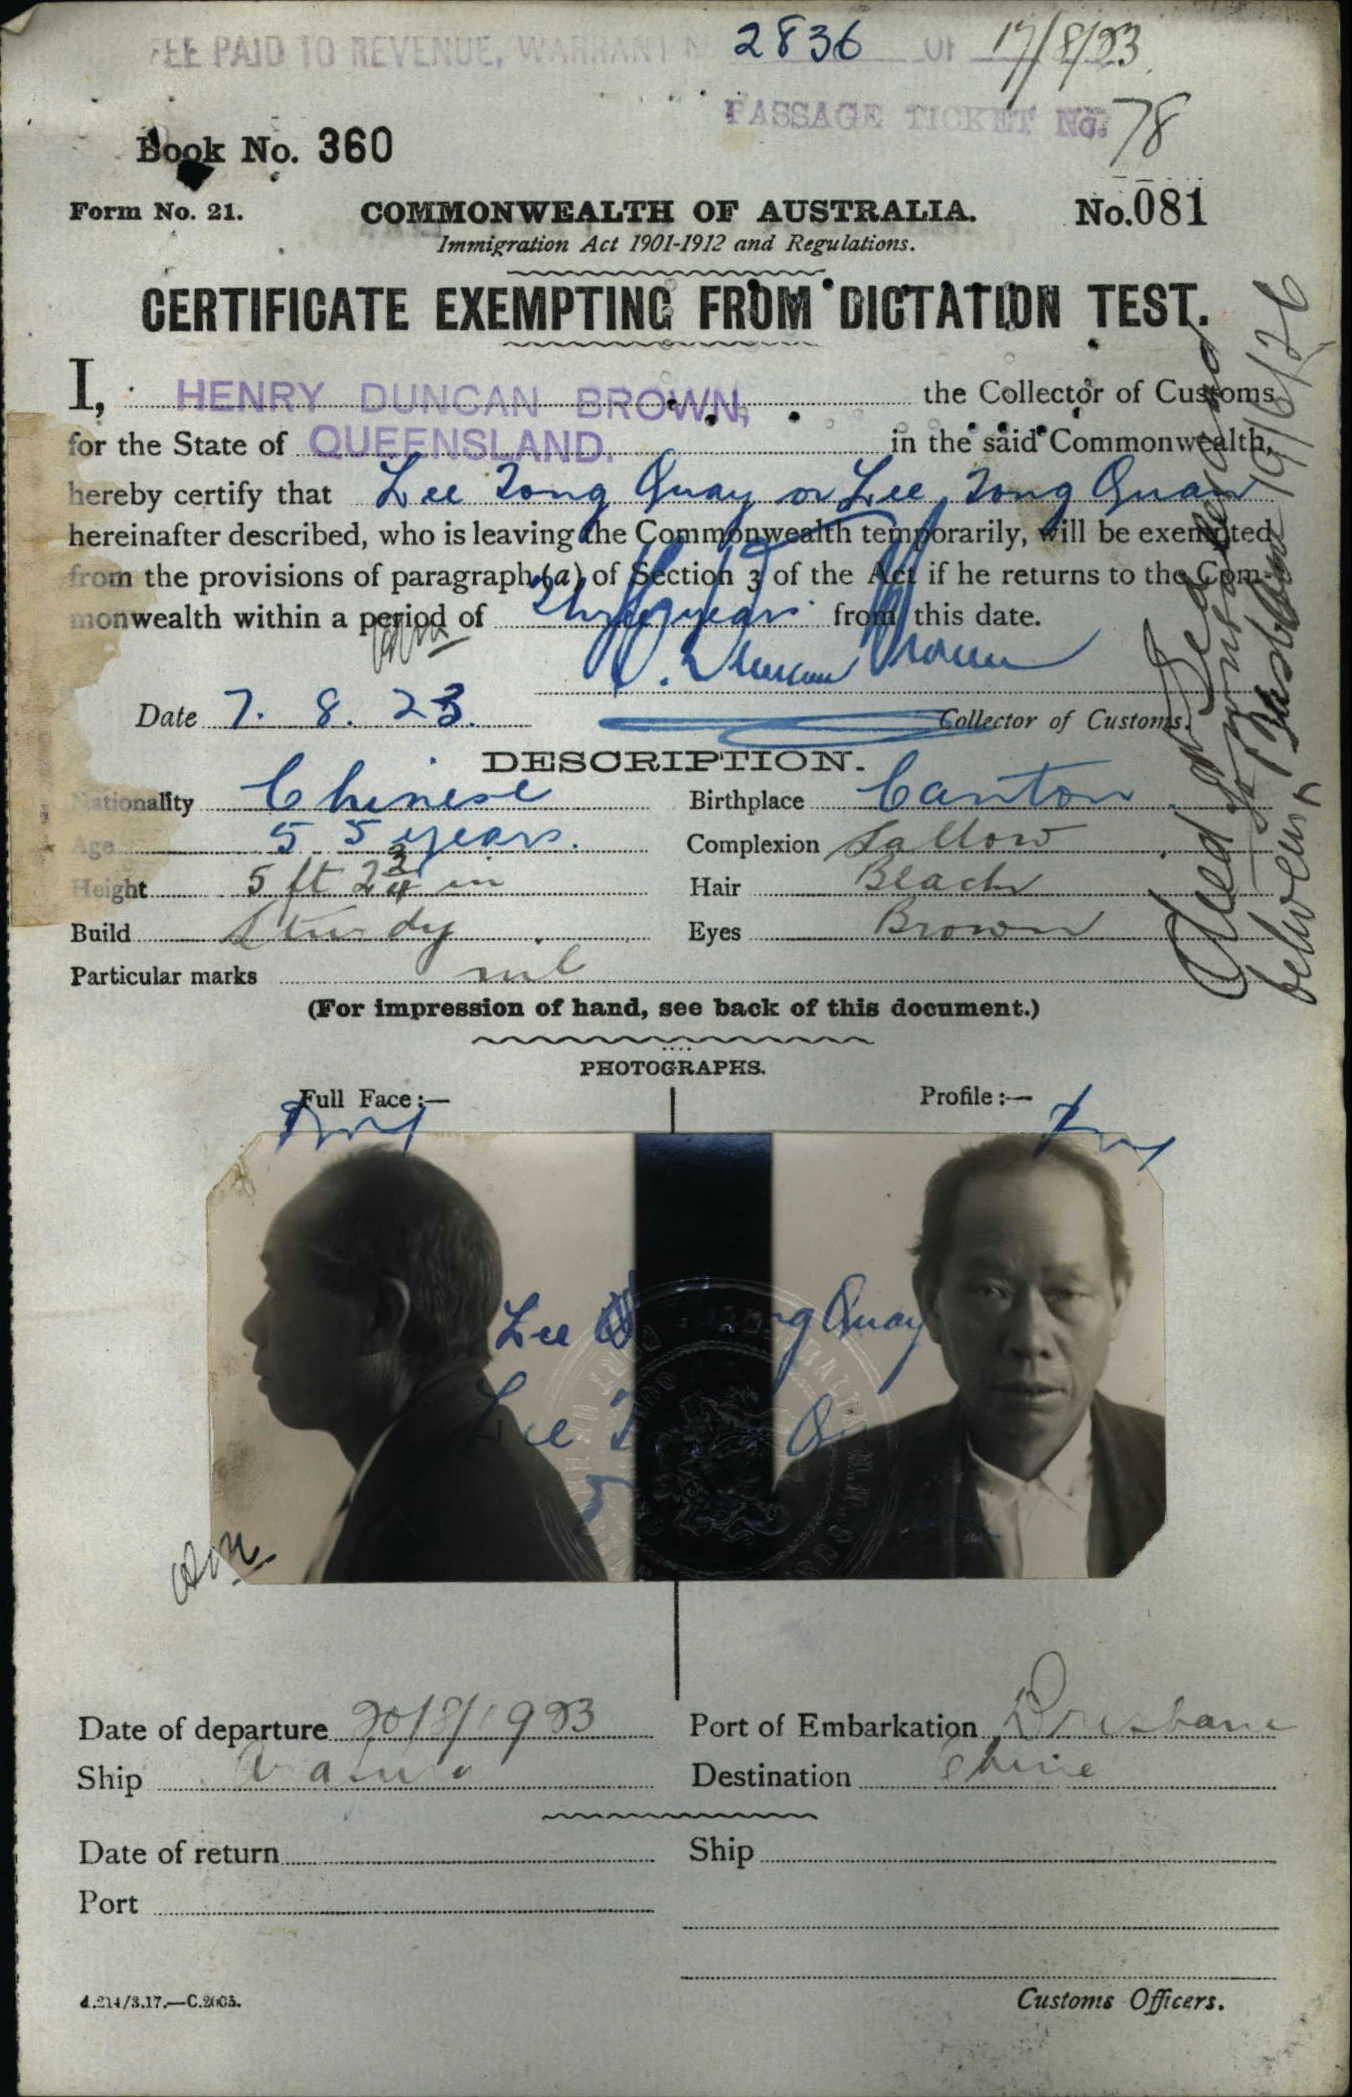 FEE PAID TO REVENUE, WARRANT N 2836 OF 17/8/23
PASSAGE TICKET No. 78
Book No. 360
Form No. 21. COMMONWEALTH OF AUSTRALIA. No. 081
Immigration Act 1901-1912 and Regulations.
CERTIFICATE EXEMPTING FROM DICTATION TEST.
I, HENRY DUNCAN BROWN, the Collector of Customs
for the State of QUEENSLAND. in the said Commonwealth,
hereby certify that Lee Tong Quay or Lee Tong Quan
hereinafter described, who is leaving the Commonwealth temporarily, will be exempted
from the provisions of paragraph (a) of Section 3 of the Act if he returns to the Com-
monwealth within a period of Three years from this date.
H. Duncan Brown
Date 7. 8. 23. Collector of Customs.
DESCRIPTION.
Nationality Chinese Birthplace Canton.
Age 55 years. Complexion Sallow
Height 5 ft 2 3/4 in Hair Black
Build Sturdy Eyes Brown
Particular marks nil
(For impression of hand, see back of this document.)
PHOTOGRAPHS.
Full Face:— Profile:—
Lee ng Quay
Lee T Qu
Date of departure 20/8/1923 Port of Embarkation Brisbane
Ship Arafura Destination China
Date of return Ship
Port
A.214/3.17.—C.2005. Customs Officers.
Died at sea
between Brisbane 19/6/26